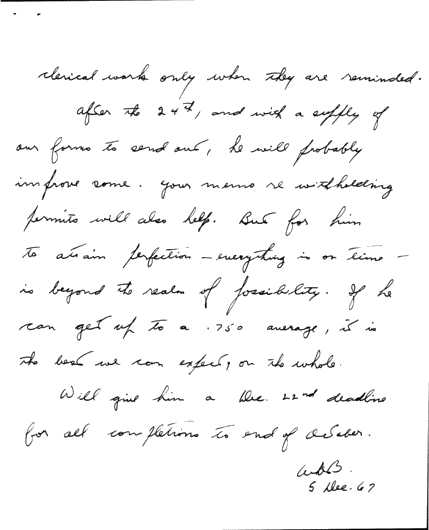 clerical work only when they are reminded.
after the 24th, and with a supply of
our forms to send out, he will probably
improve some. your memo re withholding
permits will also help. But for him
to attain perfection - everything is on time -
is beyond the realm of possibility. If he
can get up to a .750 average, it is
the best we can expect, on the whole.
Will give him a Dec. 22nd deadline
for all completions to end of October.
5 Dec. 67